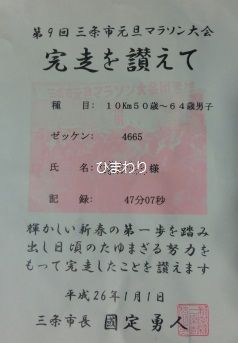 第9回 三条市元旦マラソン大会
完走を讃えて
種 目: 10Km50歳～64歳男子
ゼッケン: 4665
氏 名: ひまわり 様
記 録: 47分07秒
輝かしい新春の第一歩を踏み
出し日頃のたゆまざる努力を
もって完走したことを讃えます
平成26年1月1日
三条市長 國定勇人